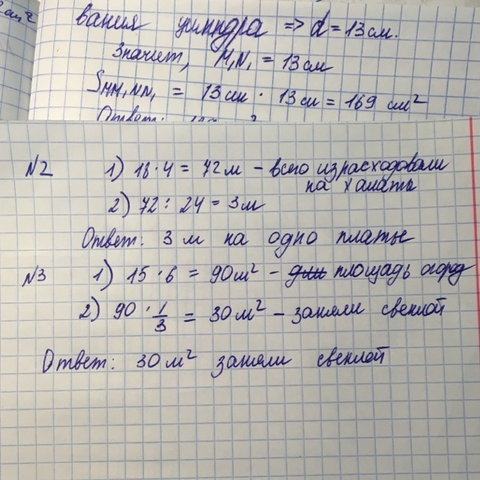 вания цилиндра => d = 13 см.
Значит, M₁N₁ = 13 см
SMM₁NN₁ = 13 см · 13 см = 169 см²
Ответ:
N2 1) 18 · 4 = 72 м - всего израсходовали
на халаты
2) 72 : 24 = 3 м
Ответ: 3 м на одно платье
N3 1) 15 · 6 = 90 м² - площадь огород
2) 90 · 1/3 = 30 м² - заняли свеклой
Ответ: 30 м² заняли свеклой